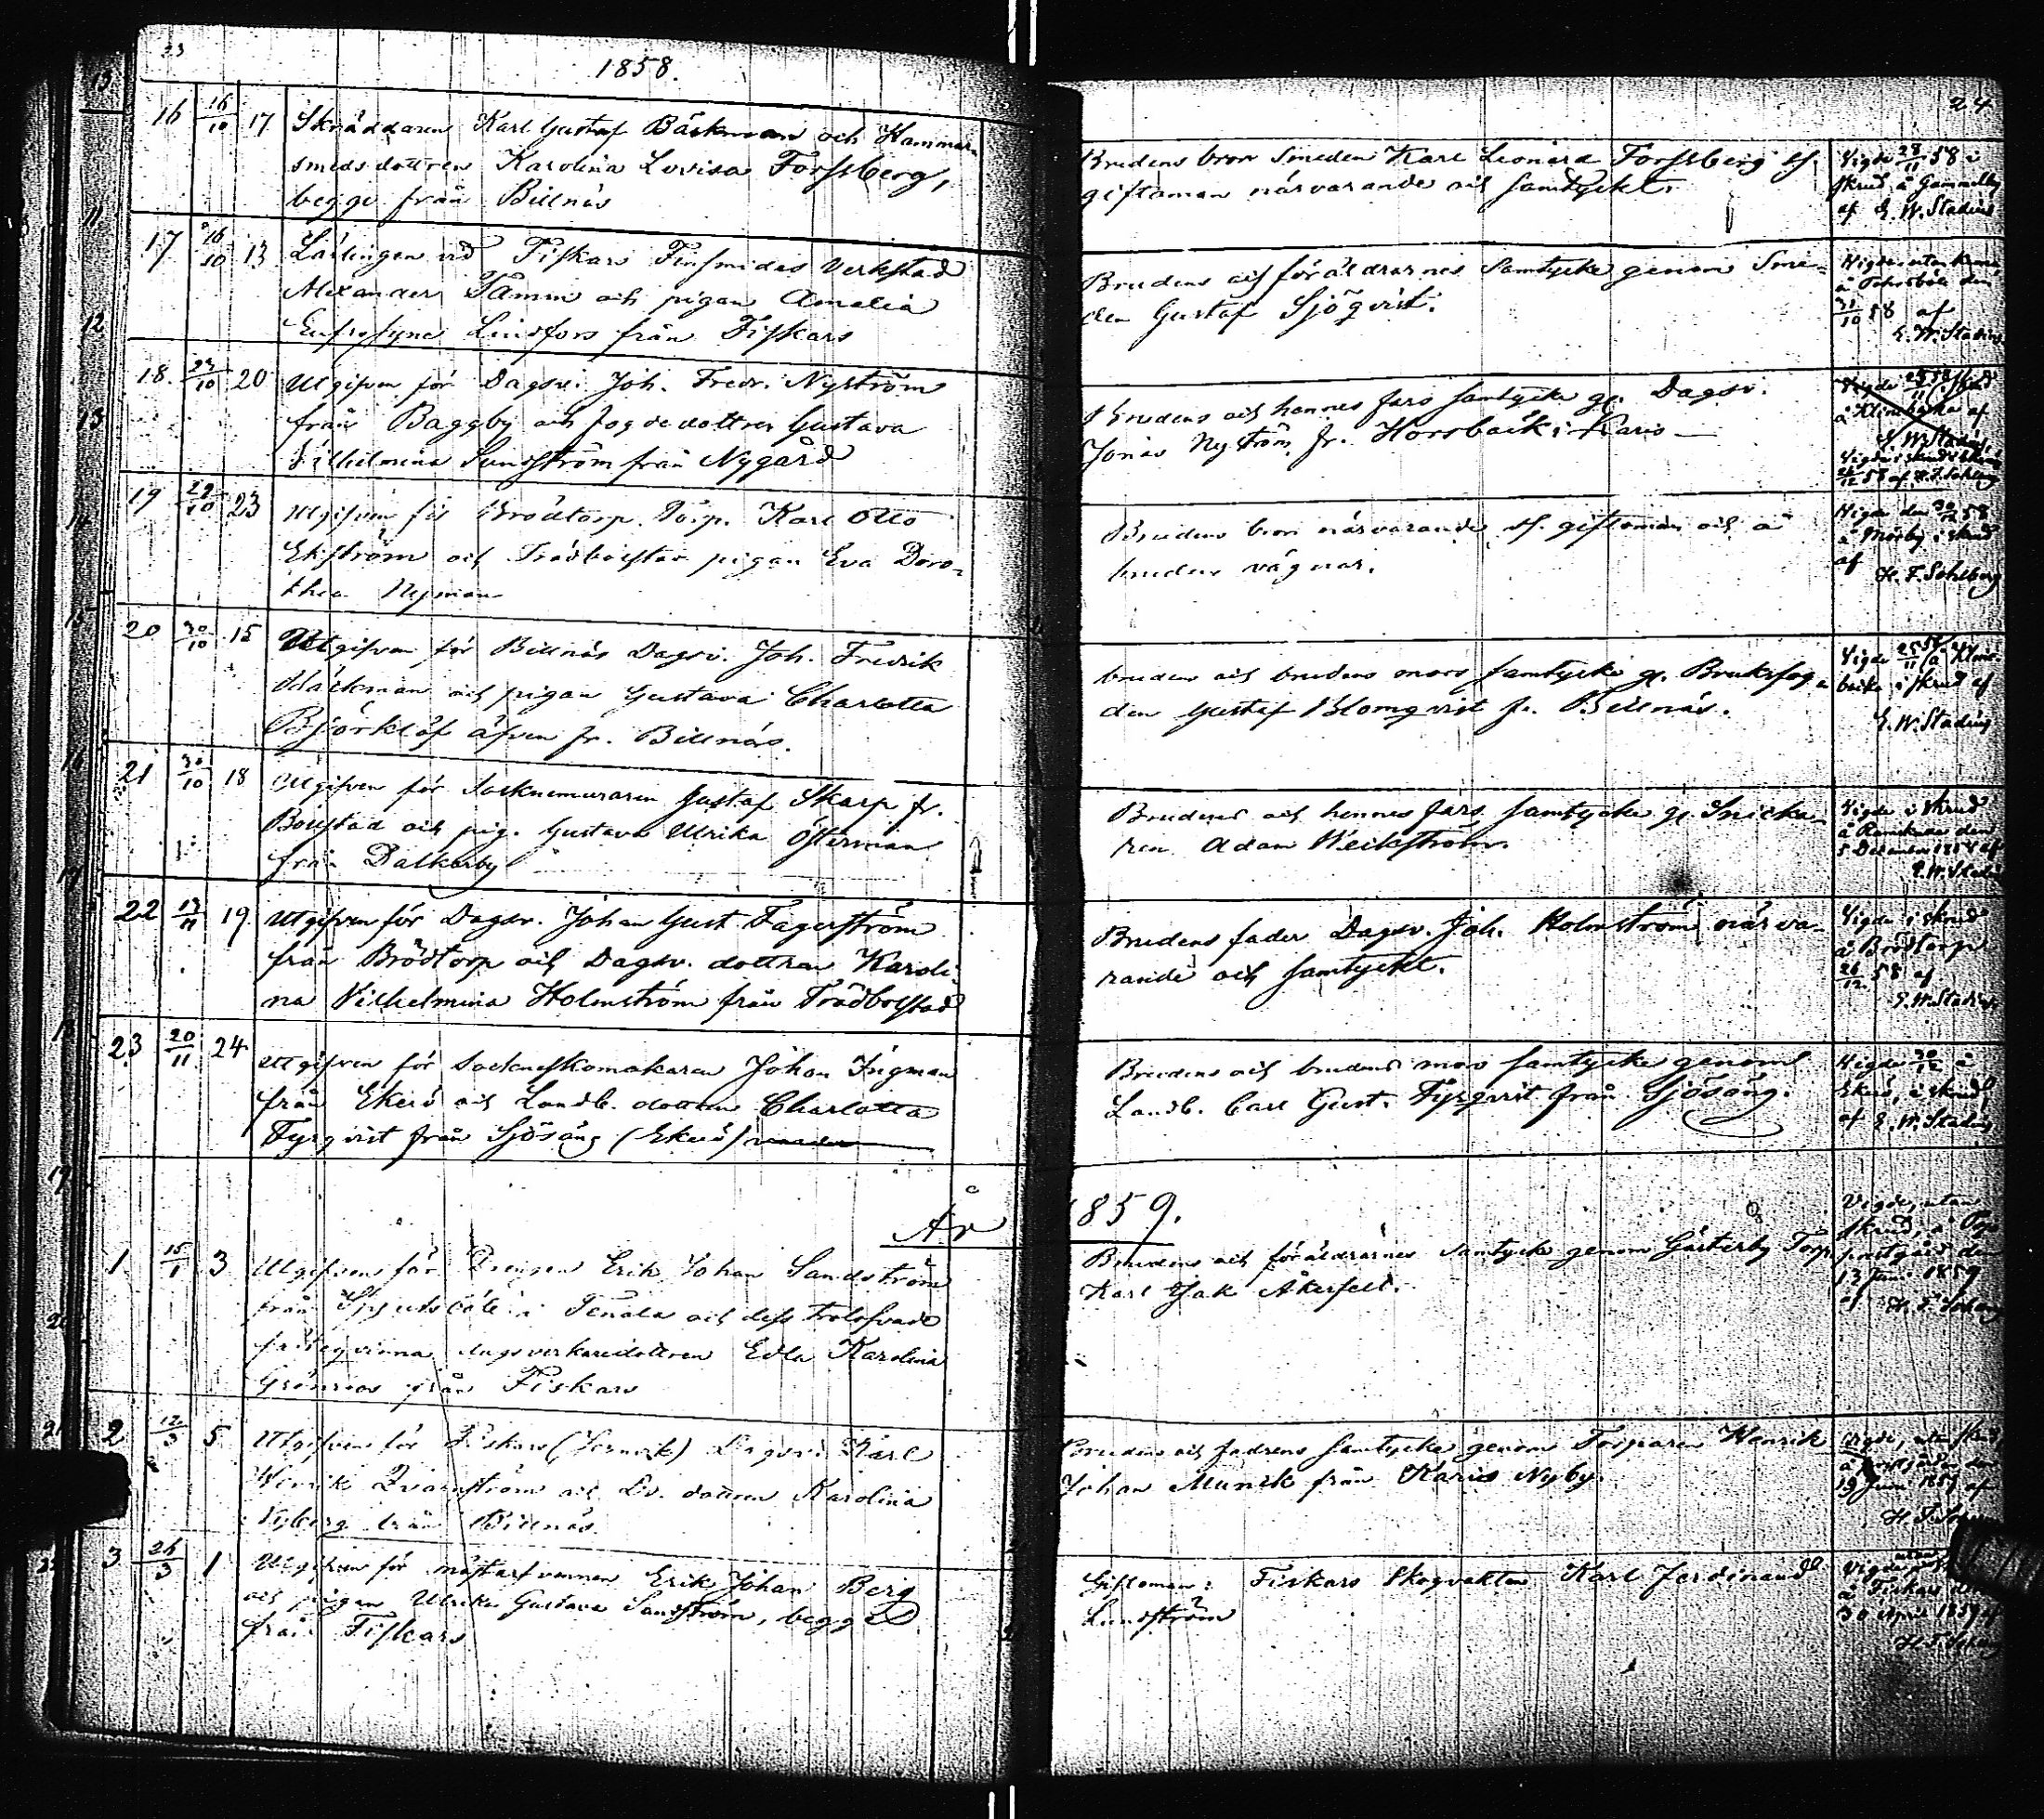 23
1858.
16 16/10 17 Skräddaren Karl Gustaf Bäckman och Hammar-
smedsdottren Karolina Lovisa Forssberg,
begge från Billnäs
17 16/10 13 Lärlingen vid Fiskars Finsmides Verkstad
Alexander Tamm och pigan Amalia
Eufrosyne Lindfors från Fiskars
18. 23/10 20 Utgifven för Dagsv. Joh. Fredr. Nyström
från Baggby och Fogdedottren Gustava
Vilhelmina Sundström från Nygård
19 29/10 23 Utgifven för Brödtorp Torp. Karl Otto
Ekström och Trädbolstad pigan Eva Doro-
thea Nyman
20 30/10 15 Utgifven för Billnäs Dagsv. Joh. Fredrik
och pigan Gustava Charlotta
Björklöf äfven fr. Billnäs.
21 30/10 18 Utgifven för Socknemuraren Gustaf Skarp fr.
Bollstad och pig. Gustava Ulrika Österman
från Dalkarby
22 13/11 19 Utgifven för Dagsv. Johan Gust Fagerström
från Brödtorp och Dagsv. dottren Karoli
na Vilhelmina Holmström från Trädbolstad
23 20/11 24 Utgifven för Sockneskomakaren Johan Ingman
från Ekerö och Landb. dottren Charlotta
Fyrqvist från Sjösäng (Ekerö)
År
1 15/1 3 Utgifven för Drengen Erik Johan Sandström
från i Tenala och dess trolofvade
fästeqvinna dagsverkaredottren Edla Karolina
Grönroos från Fiskars
2 12/3 5 Utgifven för Fiskars Dagsv. Karl
Henrik och dottren Karolina
Nyberg från Billnäs
3 26/3 1 Utgifven för mästarsvennen Erik Johan Berg
och pigan Ulrika Gustava Sandström, begge
från Fiskars
24
Brudens bror Smeden Karl Leonard Forssberg ss.
giftoman närvarande och samtyckt.
Vigde 28/11 58 i
skrud å Gammelby
af E. W. Stadius
Brudens och föräldrarnes samtycke genom Sme-
den Gustaf Sjöqvist.
Vigde utan
å den
31/10 58 af
E. W. Stadius
Brudens och hennes fars samtycke gm. Dagsv.
Jonas Nyström fr. Horsbäck i Karis
å af
E. W. Stadius
26/12 58 af H. F. Sohlberg
Brudens bror närvarande ss. giftoman och å
brudens vägnar.
Vigde den 30/12 58
å Mörby i skrud
af H. F. Sohlberg
bruden och brudens mors samtycke gm. Bruksfog-
den Gustaf Blomqvist fr. Billnäs.
Vigde 25/11 58 å
i skrud af
E. W. Stadius
Brudens och hennes fars samtycke gm. Snicka
ren Adam Weikström.
Vigde i skrud
å den
5 December 1858 af
E. W. Stadius
Brudens fader Dagsv. Joh. Holmström närva-
rande och samtyckt.
Vigde i skrud
å Brödtorp
26/12 58 af
E. W. Stadius
Brudens och brudens mors samtycke genom
Landb. Carl Gust. Fyrqvist från Sjösäng.
Vigde 30/12 å
Ekerö, i skrud
af E. W. Stadius
1859.
Brudens och föräldrarnes samtycke genom Gästerby Torp.
Karl Isak Åkerfelt.
Vigde, utan
skrud, å
prestgård den
13 1859
af H. F. Sohlberg
Brudens och fadrens samtycke genom Torparen Henrik
Johan Munck från Karis Nyby.
Vigde, utan skrud,
å den
19 Juni 1859 af
Giftoman: Fiskars Skogvakten Karl Ferdinand
Lundström
Vigde utan
å Fiskars
30 April 1859 af